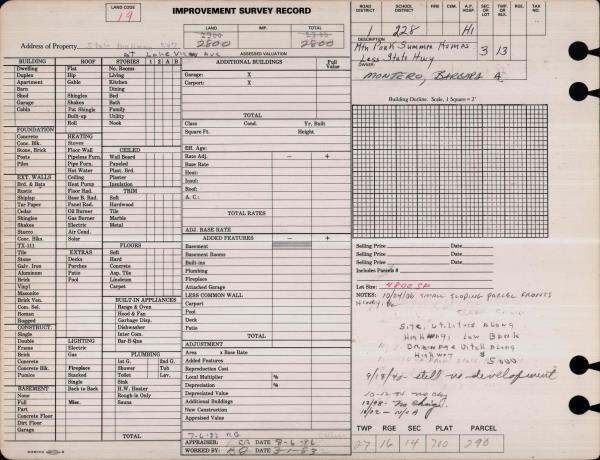 LAND CODE
19
IMPROVEMENT SURVEY RECORD
LAND IMP. TOTAL
2800 2800
ASSESSED VALUATION
Address of Property
at Lake View Ave
ROAD DISTRICT SCHOOL DISTRICT FIRE CEM. A.P. HOSP. SEC. OR LOT TWP. OR BLK.
228 H1
DESCRIPTION
Mtn Park Summer Homes 3 13
Less State Hwy
OWNER
MONTERO, BARBARA A
BUILDING ROOF STORIES 1 2 A B
Dwelling Flat No. Rooms
Duplex Hip Living
Apartment Gable Kitchen
Barn Dining
Shed Shingles Bed
Garage Shakes Bath
Cabin Pat Shingle Family
Built-up Utility
Roll Nook
FOUNDATION
Concrete HEATING
Conc. Blk. Stoves
Stone, Brick Floor-Wall CEILED
Posts Pipeless Furn. Wall Board
Piles Pipe Furn. Paneled
Hot Water Plast. Brd.
EXT. WALLS Ceiling Plaster
Brd. & Bats Heat Pump Insulation
Rustic Floor Rad. TRIM
Shiplap Base B. Rad. Soft
Tar Paper Panel Rad. Hardwood
Cedar Oil Burner Tile
Shingles Gas Burner Marble
Shakes Electric Metal
Stucco Air Cond.
Conc. Blks. Solar
TX-111 FLOORS
Tile EXTRAS Soft
Stone Decks Hard
Galv. Iron Porches Concrete
Aluminum Patio Asp. Tile
Brick Pool Linoleum
Vinyl Carpet
Masonite
Brick Ven. BUILT-IN APPLIANCES
Con. Sel. Range & Oven
Roman Hood & Fan
Rugged Garbage Disp.
CONSTRUCT. Dishwasher
Single Inter Com.
Double LIGHTING Bar-B-Que
Frame Electric
Brick Gas PLUMBING
Concrete 1st G. 2nd G.
Concrete Blk. Fireplace Shower Tub
Pumice Stacked Toilet Lav.
Single Sink
BASEMENT Back to Back H.W. Heater
None Rough-in Only
Full Misc. Sauna
Part
Concrete Floor
Dirt Floor
Garage TOTAL
ADDITIONAL BUILDINGS Full Value
Garage: X
Carport: X
TOTAL
Class Cond. Yr. Built
Square Ft. Height
Eff. Age:
Rate Adj. − +
Base Rate
Heat:
Insul:
Roof:
A. C.:
TOTAL RATES
ADJ. BASE RATE
ADDED FEATURES − +
Basement
Basement Rooms
Built-ins
Plumbing
Fireplace
Attached Garage
LESS COMMON WALL
Carport
Pool
Deck
Patio
TOTAL
ADJUSTMENT
Area x Base Rate
Added Features
Reproduction Cost
Local Multiplier %
Depreciation %
Depreciated Value
Additional Buildings
New Construction
Appraised Value
7-6-82 RG
APPRAISER: CB DATE 8-6-86
WORKED BY: DATE 3-1-83
Building Outline. Scale, 1 Square = 2'
Selling Price Date
Selling Price Date
Selling Price Date
Includes Parcels #
Lot Size: 4800 SF
NOTES: 10/24/06 SMALL SLOPING PARCEL FRONTS
Site, Utilities Along
Highway; Low Bank
Drainage Ditch Along
Highway $
5000
9/18/90 still no development
10-12-94 no chg
TWP RGE SEC PLAT PARCEL
27 16 14 700 290